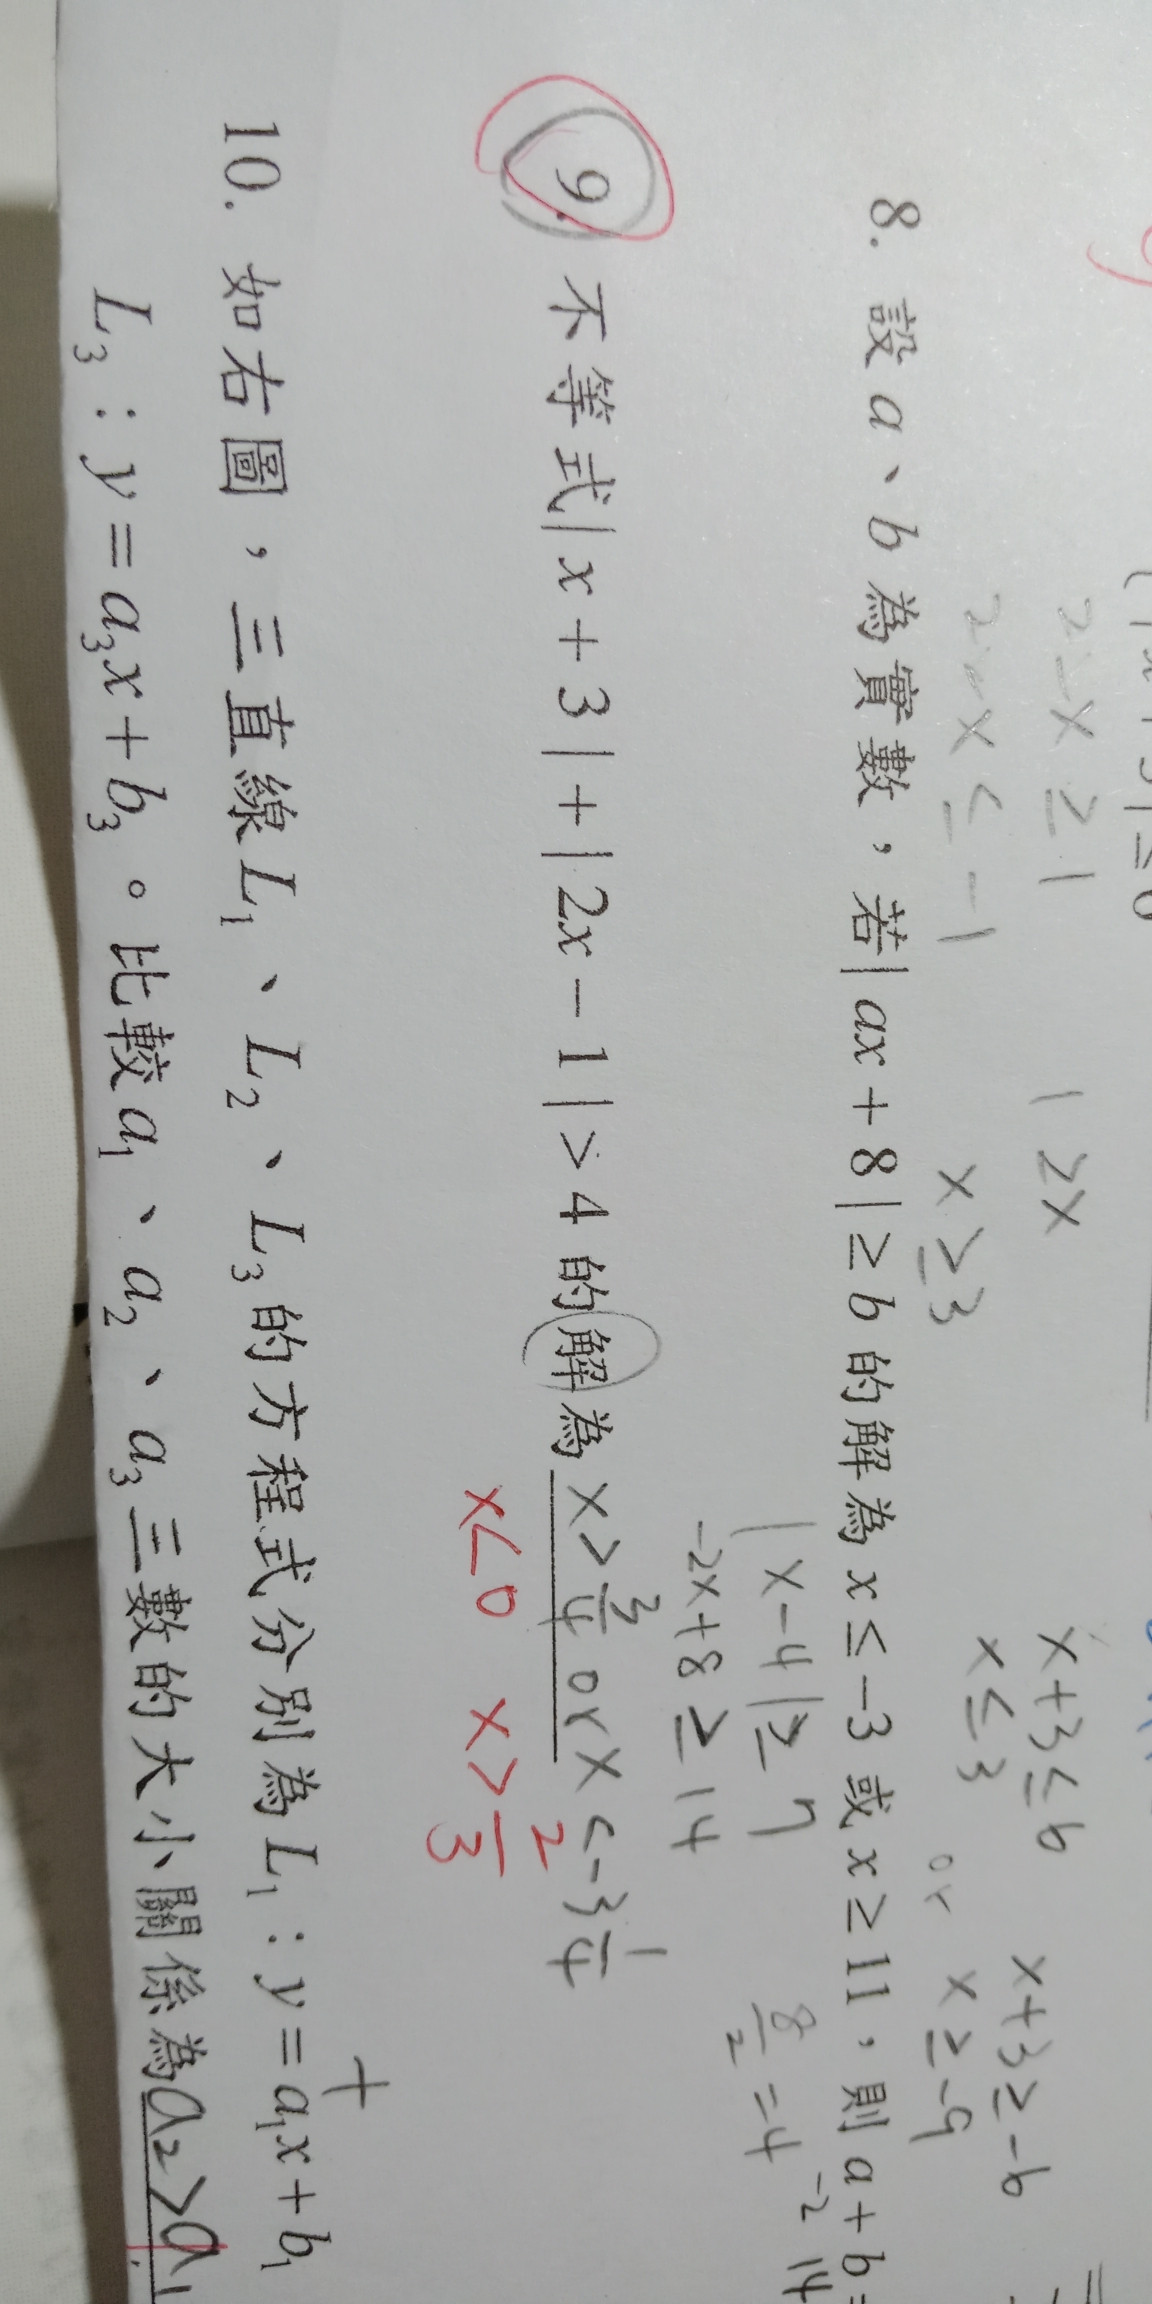 2-x≥1
2-x≤-1
| 2x
x≥3
x+3≤6
x≤3
or
x+3≥-6
x≥-9
8. 設 a、b 為實數，若|ax+8|≥b 的解為 x≤-3 或 x≥11，則 a+b=
|x-4|≥7
-2x+8≥14
8/2=4
-2 14
9. 不等式|x+3|+|2x-1|>4 的解為 x>3/4 or x<-3 1/4
x<0 x>2/3
10. 如右圖，三直線 L₁、L₂、L₃的方程式分別為 L₁：y=a₁x+b₁
+
L₃：y=a₃x+b₃。比較 a₁、a₂、a₃三數的大小關係為 a₂>a₁